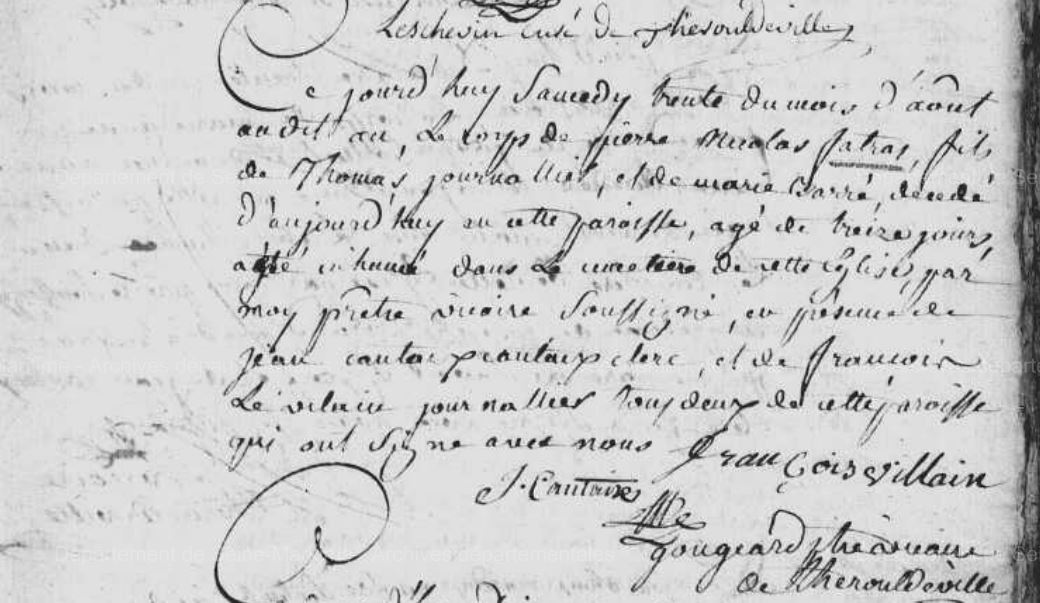 Leschevin curé de Therouldeville,
Ce jourd'huy Samedy trente du mois d'août
audit an, Le corps de pierre Nicolas fatras, fils
de Thomas journallier, et de marie Barré, decedé
d'aujourd'huy en cette paroisse, agé de treize jours,
a été inhumé dans Le cimetiere de cette Eglise, par
moy prêtre vicaire Soussigné, en présence de
jean cantaix clerc, et de francois
Le vilain journallier tous deux de cette paroisse
qui ont Signé avec nous Francois villain
J. Cantaix
gougeard vicaire
de Therouldeville